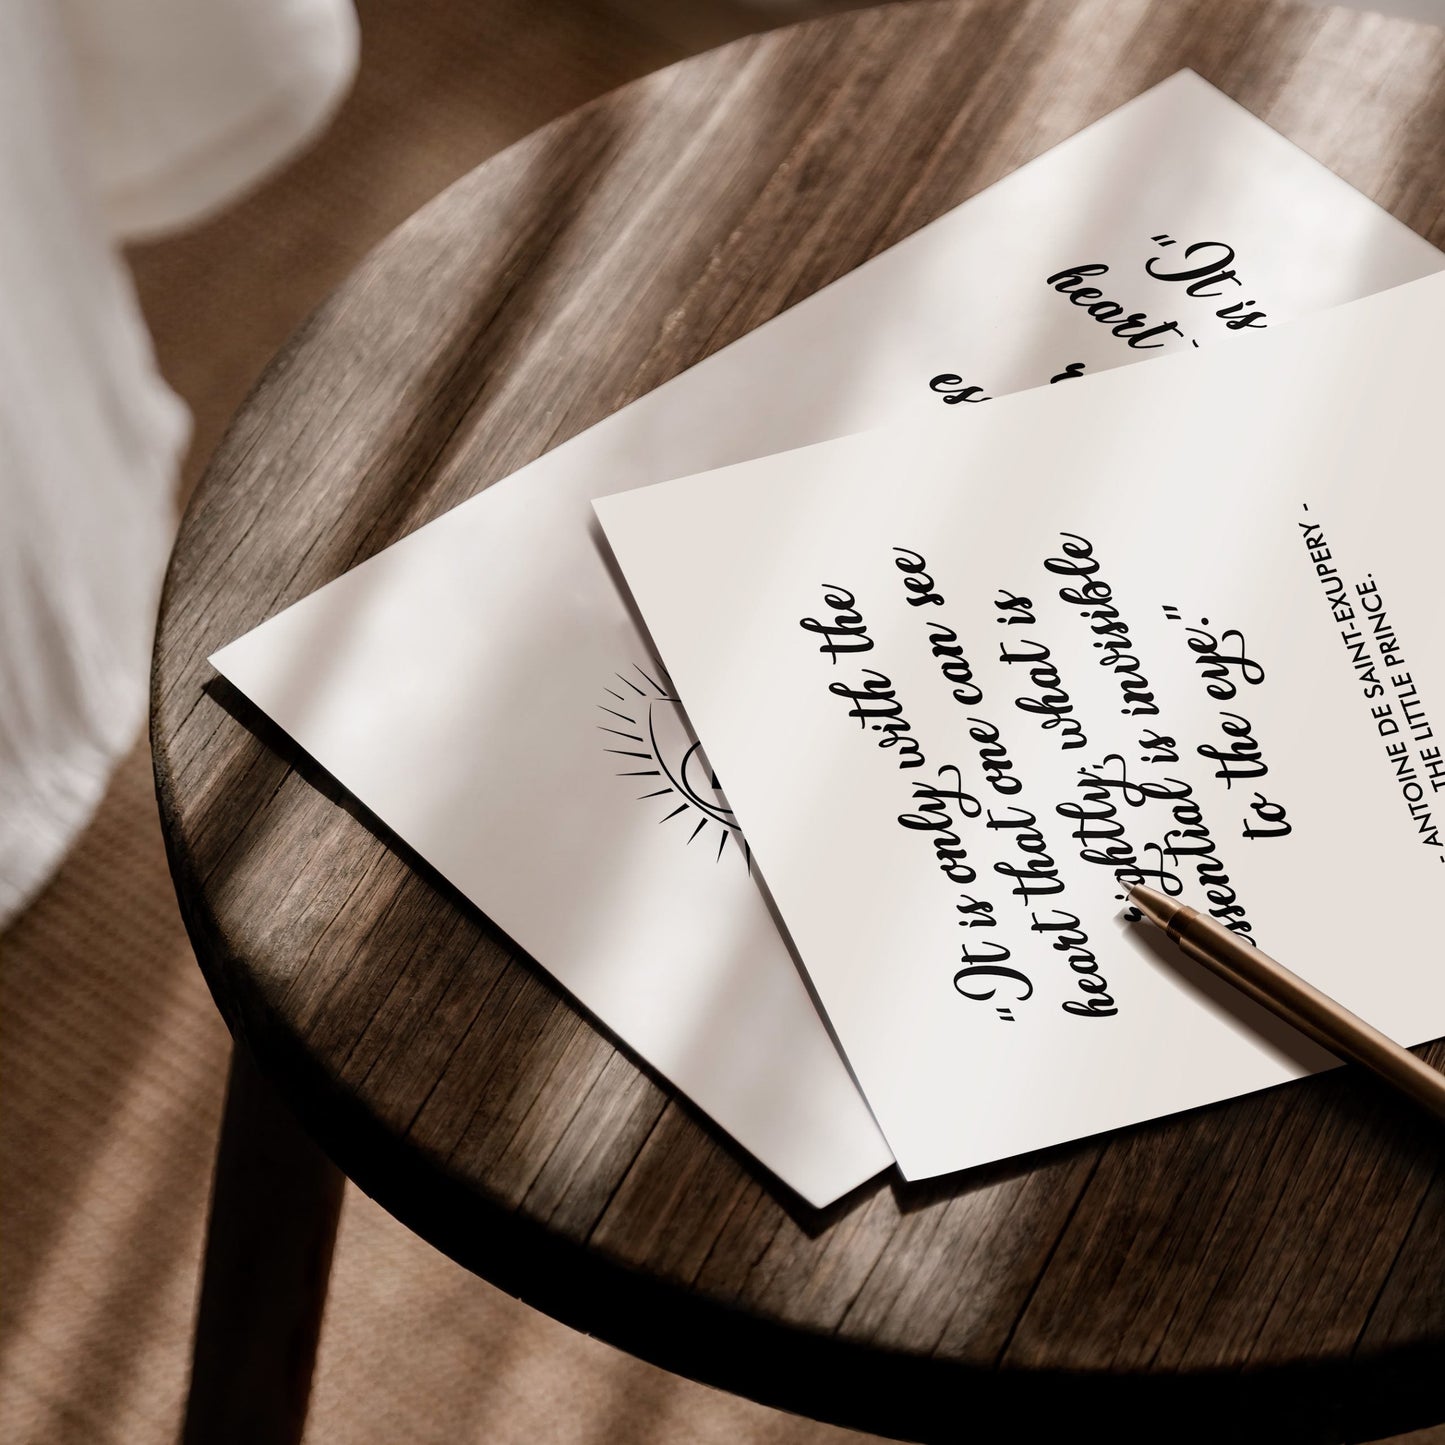 "It is
heart
es
"It is only with the
heart that one can see
rightly; what is
essential is invisible
to the eye."
- ANTOINE DE SAINT-EXUPERY -
THE LITTLE PRINCE.